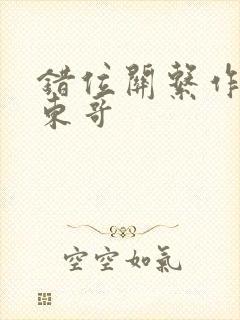 錯位關繫作
東哥
空空如氣